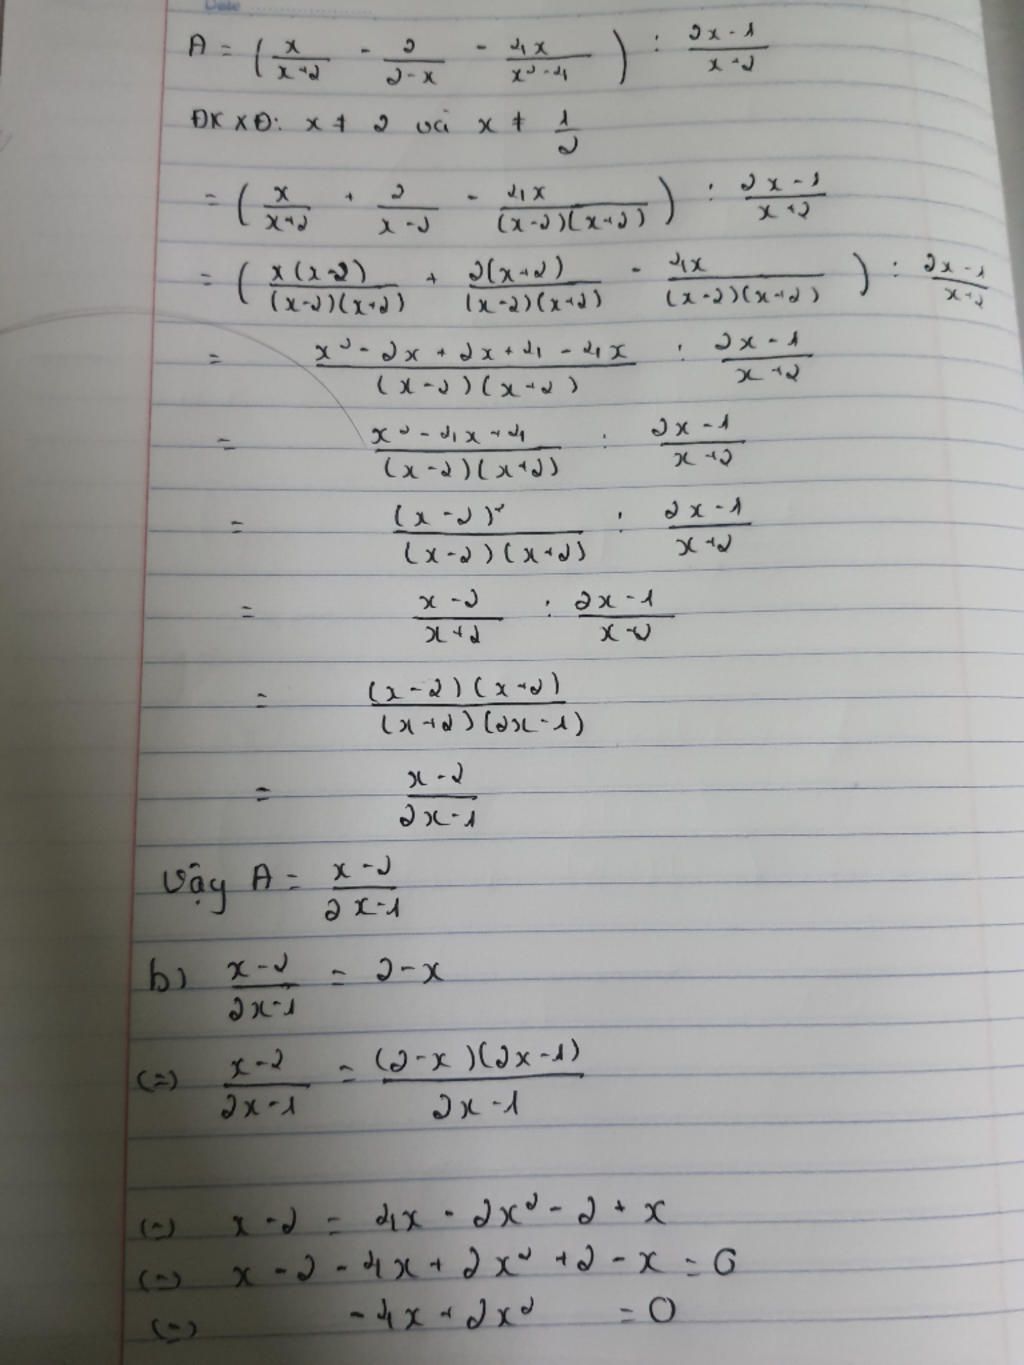 Date
A = ( x/(x+2) - 2/(2-x) - 4x/(x²-4) ) : (2x-1)/(x+2)
ĐKXĐ: x ≠ 2 và x ≠ 1/2
= ( x/(x+2) + 2/(x-2) - 4x/((x-2)(x+2)) ) : (2x-1)/(x+2)
= ( x(x-2)/((x-2)(x+2)) + 2(x+2)/((x-2)(x+2)) - 4x/((x-2)(x+2)) ) : (2x-1)/(x+2)
= (x²-2x+2x+4-4x)/((x-2)(x+2)) : (2x-1)/(x+2)
= (x²-4x+4)/((x-2)(x+2)) : (2x-1)/(x+2)
= (x-2)²/((x-2)(x+2)) : (2x-1)/(x+2)
= (x-2)/(x+2) : (2x-1)/(x+2)
= (x-2)(x+2)/((x+2)(2x-1))
= (x-2)/(2x-1)
Vậy A = (x-2)/(2x-1)
b) (x-2)/(2x-1) = 2-x
(=) (x-2)/(2x-1) = (2-x)(2x-1)/(2x-1)
(=) x-2 = 4x - 2x² - 2 + x
(=) x - 2 - 4x + 2x² + 2 - x = 0
(=) -4x + 2x² = 0